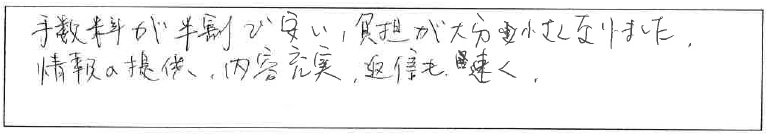 手数料が半割で安い,負担が大分小さくなりました,
情報の提供、,内容充実,返信も速く,